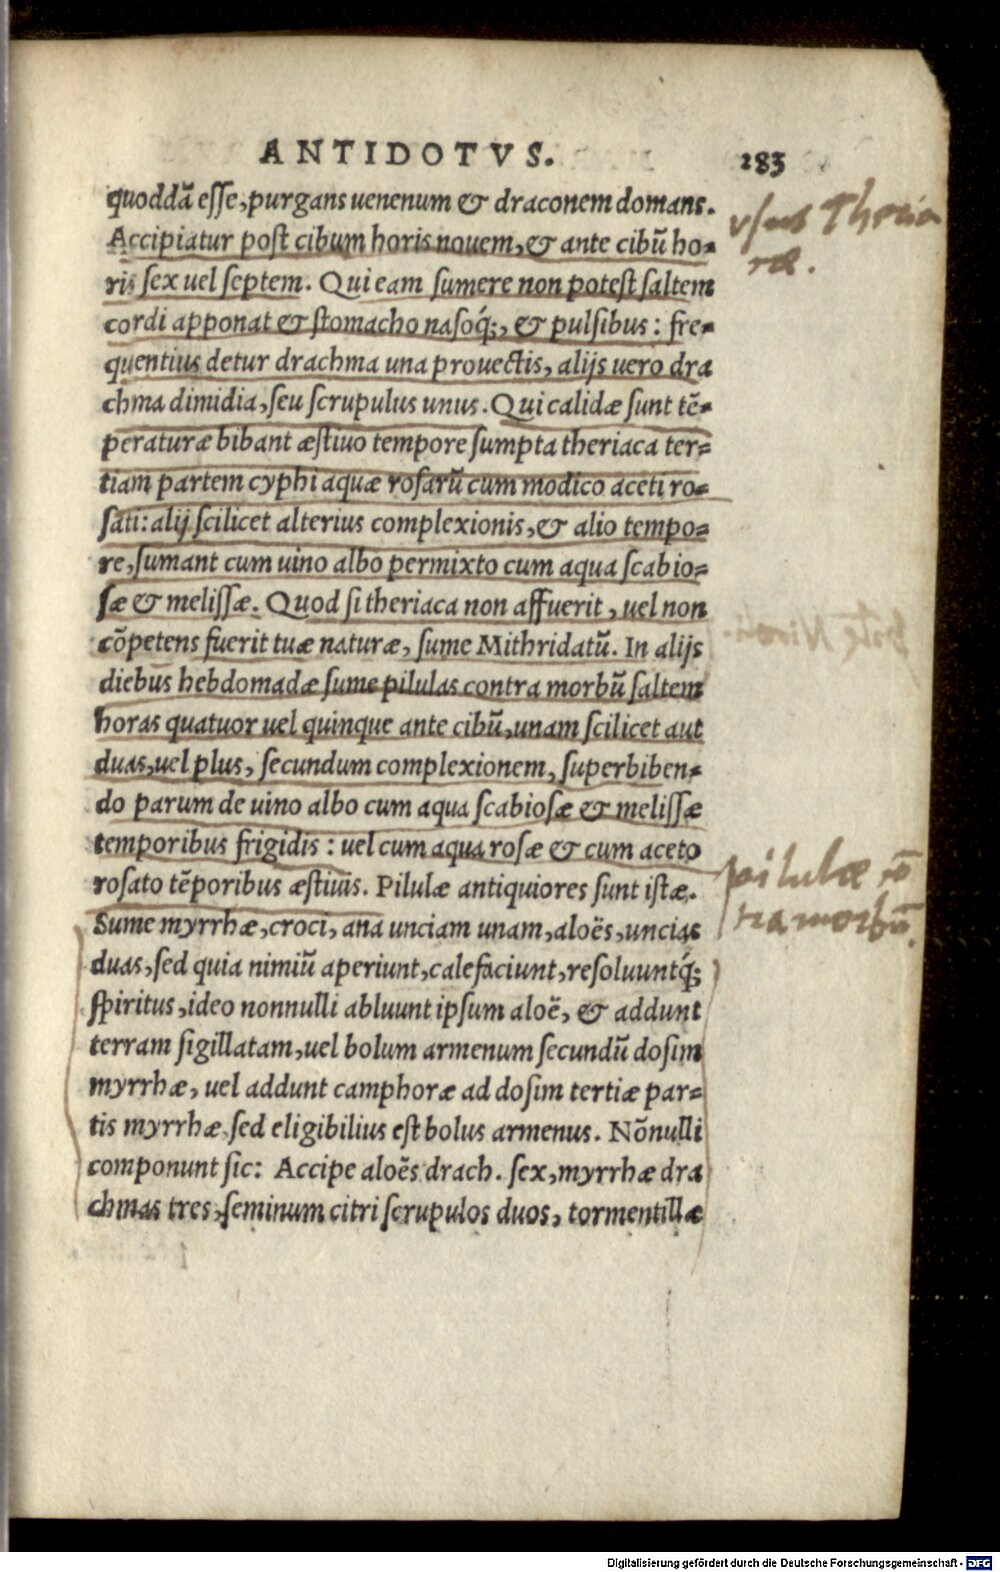 ANTIDOTVS. 183
quoddā esse, purgans uenenum & draconem domans.
Accipiatur post cibum horis nouem, & ante cibū ho=
ris sex uel septem. Qui eam sumere non potest saltem
cordi apponat & stomacho nasoq́;, & pulsibus: fre=
quentius detur drachma una prouectis, alijs uero dra
chma dimidia, seu scrupulus unus. Qui calidæ sunt tē=
peraturæ bibant æstiuo tempore sumpta theriaca ter=
tiam partem cyphi aquæ rosarū cum modico aceti ro=
sati: alij scilicet alterius complexionis, & alio tempo=
re, sumant cum uino albo permixto cum aqua scabio=
sæ & melissæ. Quod si theriaca non affuerit, uel non
cōpetens fuerit tuæ naturæ, sume Mithridatū. In alijs
diebus hebdomadæ sume pilulas contra morbū saltem
horas quatuor uel quinque ante cibū, unam scilicet aut
duas, uel plus, secundum complexionem, superbiben=
do parum de uino albo cum aqua scabiosæ & melissæ
temporibus frigidis: uel cum aqua rosæ & cum aceto
rosato tēporibus æstiuis. Pilulæ antiquiores sunt istæ.
Sume myrrhæ, croci, ana unciam unam, aloës, uncias
duas, sed quia nimiū aperiunt, calefaciunt, resoluuntq́;
spiritus, ideo nonnulli abluunt ipsum aloē, & addunt
terram sigillatam, uel bolum armenum secundū dosim
myrrhæ, uel addunt camphoræ ad dosim tertiæ par=
tis myrrhæ, sed eligibilius est bolus armenus. Nōnulli
componunt sic: Accipe aloës drach. sex, myrrhæ dra
chmas tres, seminum citri scrupulos duos, tormentillæ
vsus Theria
cæ.
pilulæ cō
tra morbū.
Digitalisierung gefördert durch die Deutsche Forschungsgemeinschaft - DFG